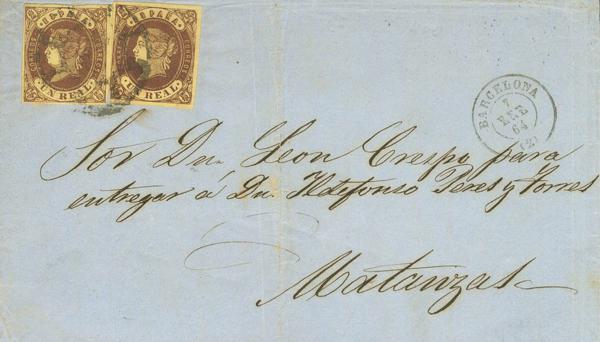 ESPAÑA
CORREOS
UN REAL
ESPAÑA
CORREOS
UN REAL
BARCELONA
7
ENE
64
(2)
Sor Dn. Leon Crespo para
entregar á Dn. Ildefonso Peres y Torres
Matanzas